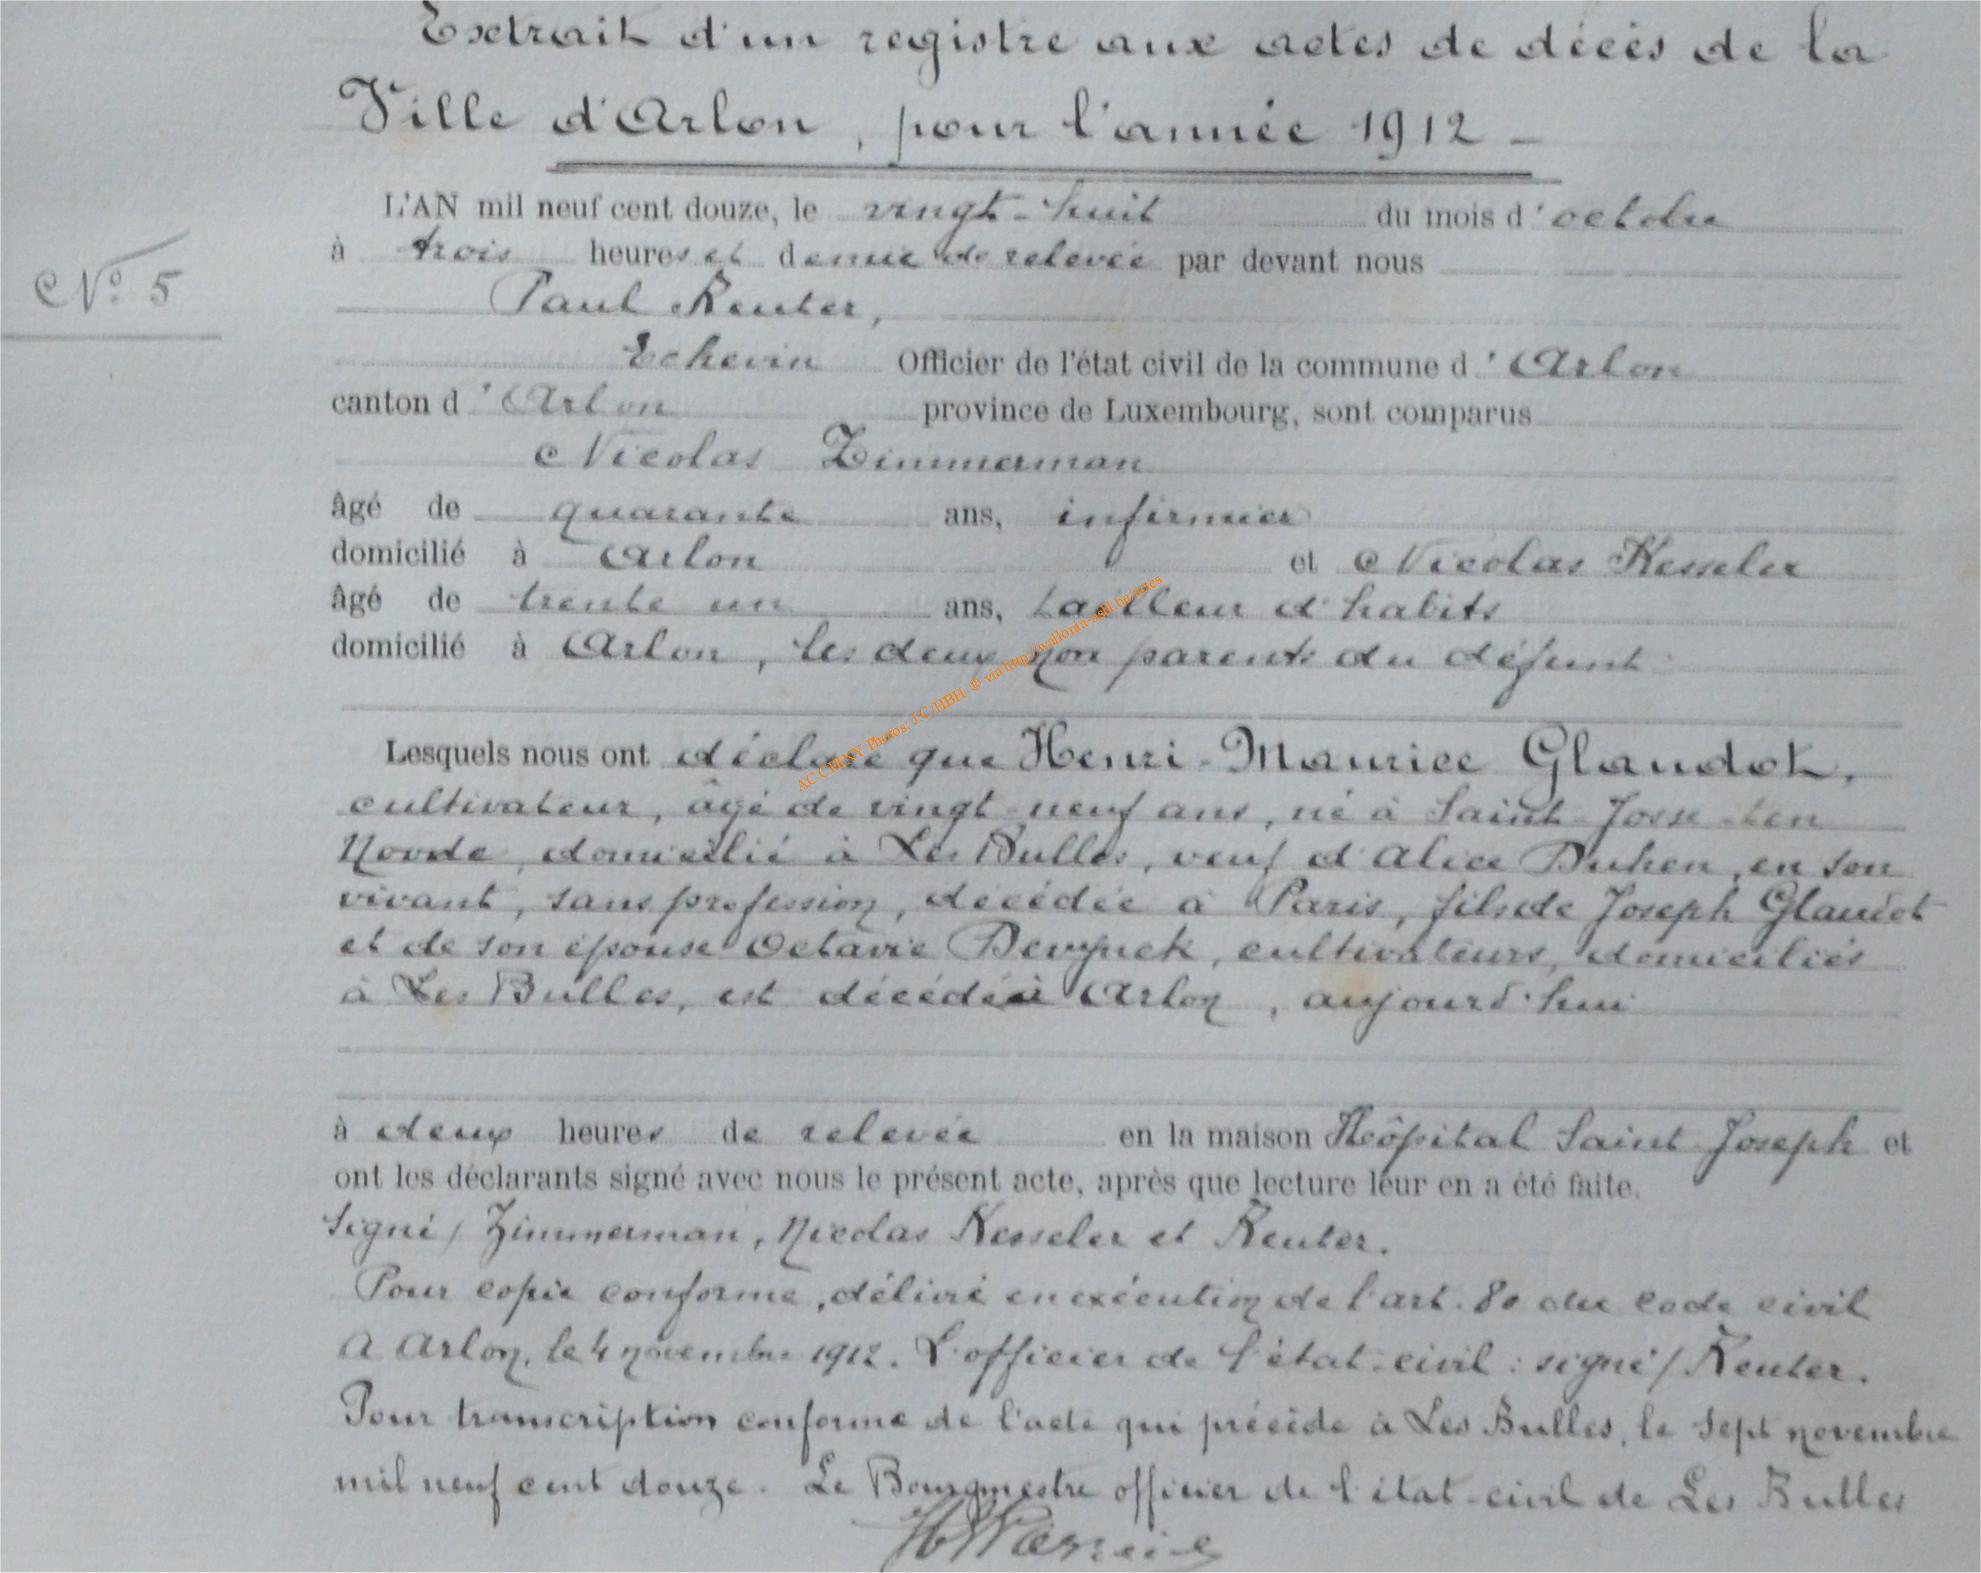 Extrait d'un registre aux actes de décès de la
Ville d'Arlon, pour l'année 1912 -
L'AN mil neuf cent douze, le vingt-huit du mois d'octobre
N° 5
à trois heures et demie de relevée par devant nous
Paul Reuter,
Echevin Officier de l'état civil de la commune d'Arlon
canton d'Arlon province de Luxembourg, sont comparus
Nicolas Zimmerman
âgé de quarante ans, infirmier
domicilié à Arlon et Nicolas Kesseler
âgé de trente un ans, tailleur d'habits
domicilié à Arlon, les deux non parents du défunt
AC CHINY Photos: J C /HBH ® via http://wallonia-asbl.be/actes
Lesquels nous ont déclaré que Henri-Maurice Glaudot,
cultivateur, âgé de vingt-neuf ans, né à Saint-Josse-ten
Noode, domicilié à Les Bulles, veuf d'Alice Duhen, en son
vivant, sans profession, décédée à Paris, fils de Joseph Glaudot
et de son épouse Octavie Devynck, cultivateurs, domiciliés
à Les Bulles, est décédé à Arlon, aujourd'hui
à deux heures de relevée en la maison Hôpital Saint-Joseph et
ont les déclarants signé avec nous le présent acte, après que lecture leur en a été faite.
Signé/ Zimmerman, Nicolas Kesseler et Reuter.
Pour copie conforme, délivré en exécution de l'art. 80 du code civil
A Arlon, le 4 novembre 1912. L'officier de l'état-civil : signé/ Reuter.
Pour transcription conforme de l'acte qui précède à Les Bulles, le sept novembre
mil neuf cent douze. Le Bourgmestre officier de l'état-civil de Les Bulles